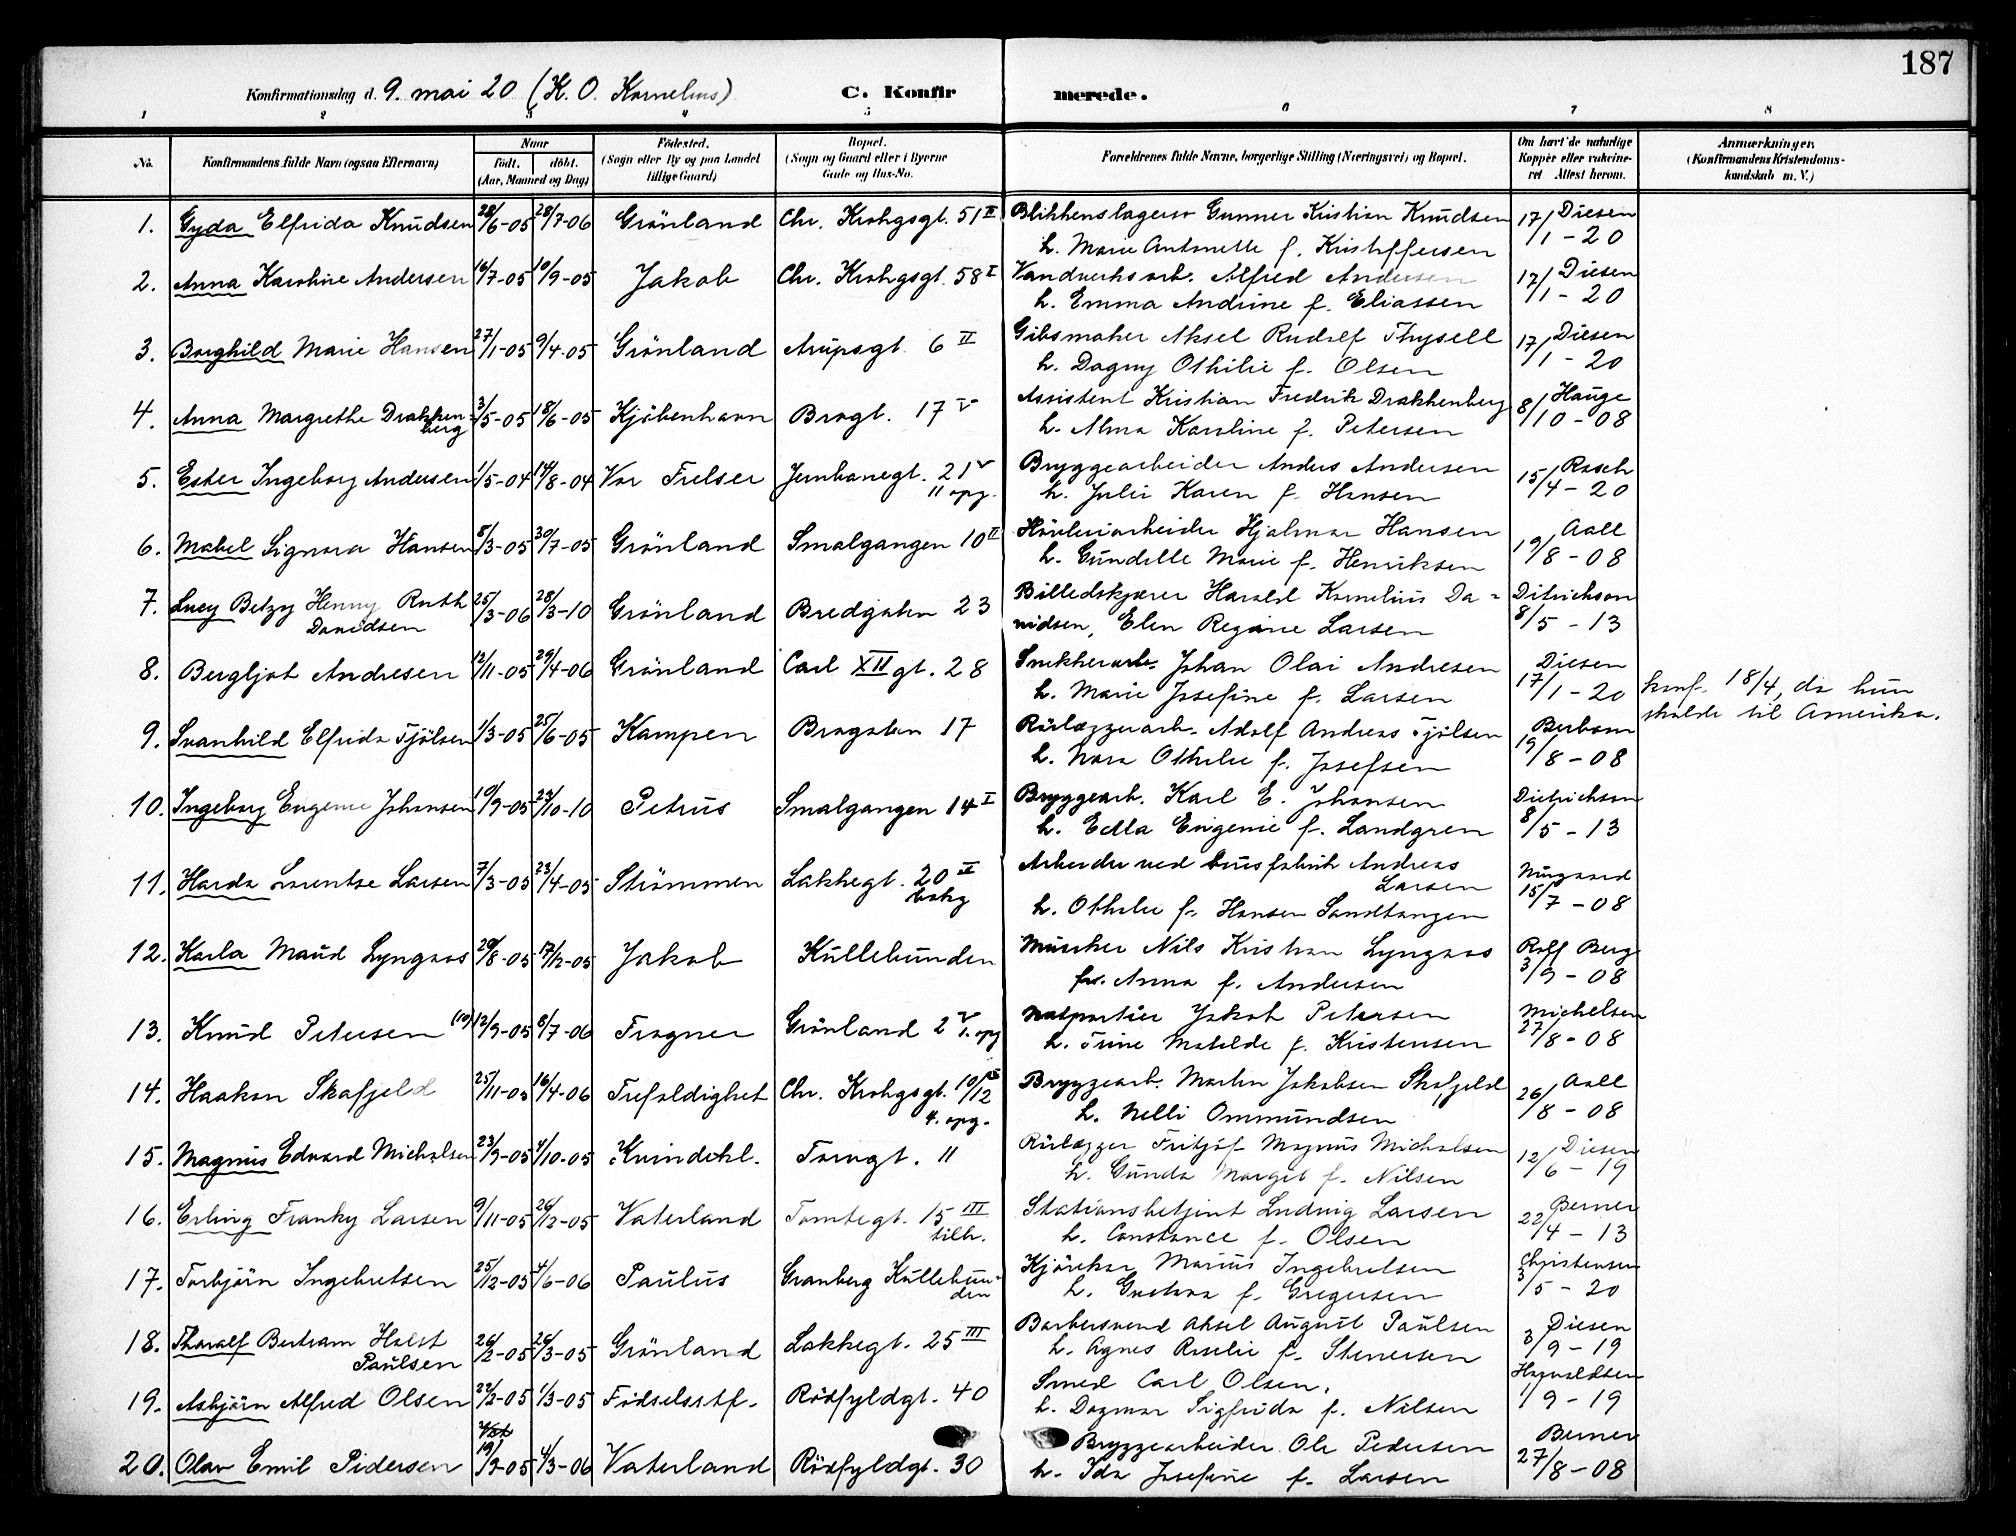 187
Konfirmationsdag d. 9. mai 20 (K. O. Kornelius) C. Konfirmerede.
1 2 3 4 5 6 7 8
No. Konfirmandens fulde Navn (ogsaa Efternavn) Naar født. døbt. (Aar, Maaned og Dag) Fødested. (Sogn eller By og paa Landet tillige Gaard) Bopæl. (Sogn og Gaard eller i Byerne Gade og Hus-No. Forældrenes fulde Navne, borgerlige Stilling (Næringsvei) og Bopæl. Om havt de naturlige Kopper eller vaccineret Attest herom. Anmærkninger. (Konfirmandens Kristendomskundskab m. V.)
1. Gyda Elfrida Knudsen 28/6-05 28/7-06 Grönland Chr. Krohgsgt. 51 II Blikkenslager Gunner Kristian Knudsen Diesen
h. Marie Antonette f. Kristoffersen 17/1-20
2. Anna Karoline Andersen 16/7-05 10/9-05 Jakob Chr. Krohgsgt. 58 I Vandverksarb. Alfred Andersen Diesen
h. Emma Andrine f. Eliassen 17/1-20
3. Borghild Marie Hansen 27/1-05 9/4-05 Grönland Arupsgt. 6 II Gibsmaker Aksel Rudolf Thysell Diesen
h. Dagny Othilie f. Olsen 17/1-20
4. Anna Margrethe Drakkenberg 3/5-05 18/6-05 Kjöbenhavn Brogt. 17 V Assistent Kristian Fredrik Drakkenberg Hauge
h. Alma Karoline f. Petersen 8/10-08
5. Ester Ingeborg Andersen 1/5-04 14/8-04 Vor Frelser Jernbanegt. 21 V Bryggearbeider Anders Andersen Rasch
11 opg. h. Julie Karen f. Hansen 15/4-20
6. Mabel Signora Hansen 8/3-05 30/7-05 Grönland Smalgangen 10 II Høvleriarbeider Hjalmar Hansen Aall
h. Gundelle Marie f. Henriksen 19/8-08
7. Lucy Betzy Henny Ruth 25/3-06 28/3-10 Grönland Bredgaten 23 Billedskjærer Harald Kornelius Da- Ditrichson
Davidsen vidsen, Elen Regine Larsen 8/5-13
8. Bergljot Andresen 12/11-05 29/4-06 Grönland Carl XII gt. 28 Snekkerarb. Johan Olai Andresen Diesen
h. Marie Josefine f. Larsen 17/1-20 konf. 18/4, da hun
skulde til Amerika.
9. Svanhild Elfrida Fjölsen 1/3-05 25/6-05 Kampen Brogaten 17 Rörlæggerarb. Adolf Andreas Fjölsen
h. Nora Othilie f. Josefsen 19/8-08
10. Ingeborg Eugenie Johansen 10/9-05 23/10-10 Petrus Smalgangen 14 I Bryggearb. Karl E. Johansen Dietrichson
h. Edla Eugenie f. Landgren 8/5-13
11. Harda Lorentse Larsen 7/3-05 23/4-05 Strömmen Lakkegt. 20 II Arbeider ved Andreas
bakg Larsen
h. Othilie f. Hansen Sandtangen 15/7-08
12. Karla Maud Lyngaas 29/8-05 17/12-05 Jakob Kullebunden Nils Kristian Lyngaas Rolf Berg
fr. Anna f. Andersen 3/9-08
13. Knud Petersen 12/9-05 8/7-06 Frogner Grönland 2 V Natportier Jakob Petersen Michelsen
1. opg h. Trine Matilde f. Kristensen 27/8-08
14. Haakon Skafjeld 25/11-05 16/4-06 Trefoldighet Chr. Krohgsgt. 10/12 Bryggearb. Martin Jakobsen Skafjeld Aall
4. opg. h. Nelli Ommundsen 26/8-08
15. Magnus Edvard Micholsen 23/9-05 4/10-05 Kvindekl. Torvgt. 11 Rörlægger Fritjof Magnus Micholsen Diesen
h. Gunda Margit f. Nilsen 12/6-19
16. Erling Franky Larsen 9/11-05 26/12-05 Vaterland Tomtegt. 15 III Stationsbetjent Ludvig Larsen Berner
tilh. h. Constance f. Olsen 22/4-13
17. Torbjörn Ingebretsen 25/12-05 4/6-06 Paulus Granberg Kullebunden Kjörekar Marius Ingebretsen Christensen
h. Gustava f. Gregersen 3/5-20
18. Thoralf Bertram Holst 26/2-05 26/3-05 Grönland Lakkegt. 25 III Barbersvend Aksel August Paulsen Diesen
Paulsen h. Agnes Roselie f. Stenersen 3/9-19
19. Asbjörn Alfred Olsen 22/2-05 1/3-05 Födselsstf. Rödfyldgt. 40 Smed Carl Olsen. Harvaldsen
h. Dagmar Sigfrida f. Nilsen 1/9-19
20. Olav Emil Pedersen 19/9-05 4/3-06 Vaterland Rödfyldgt. 30 Bryggearbeider Ole Pedersen Berner
h. Ida Josefine f. Larsen 27/8-08